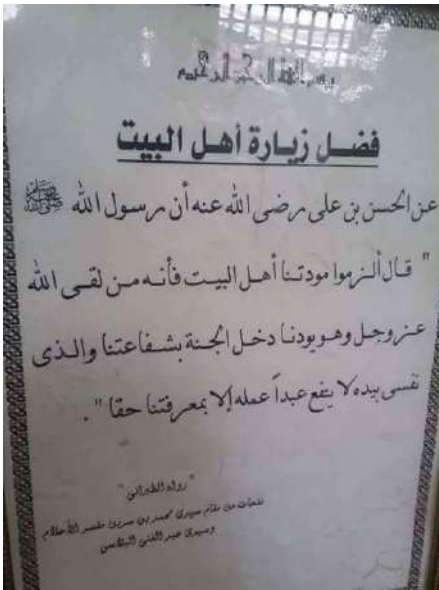 بسم الله الرحمن الرحيم
فضل زيارة أهل البيت
عن الحسن بن على رضى الله عنه أن رسول الله ﷺ
" قال ألزموا مودتنا أهل البيت فأنه من لقى الله
عز وجل وهو يودنا دخل الجنة بشفاعتنا والذى
نفسى بيده لا ينفع عبداً عمله إلا بمعرفتنا حقا " .
"رواه الطبرانى"
نفحات من مقام سيدى محمد بن سرين مفسر الأحلام
وسيدى عبد الغنى البلاسى